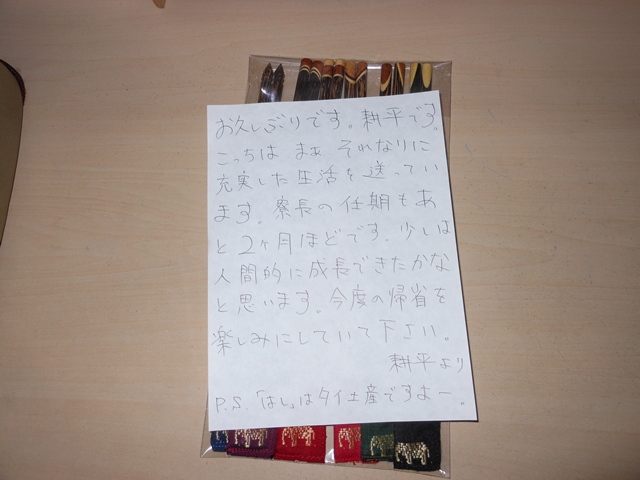 お久しぶりです。耕平です。
こっちは まぁ それなりに
充実した生活を送ってい
ます。寮長の任期もあ
と2ヶ月ほどです。少しは
人間的に成長できたかな
と思います。今度の帰省を
楽しみにしていて下さい。
耕平より
P.S.「はし」はタイ土産ですよー。